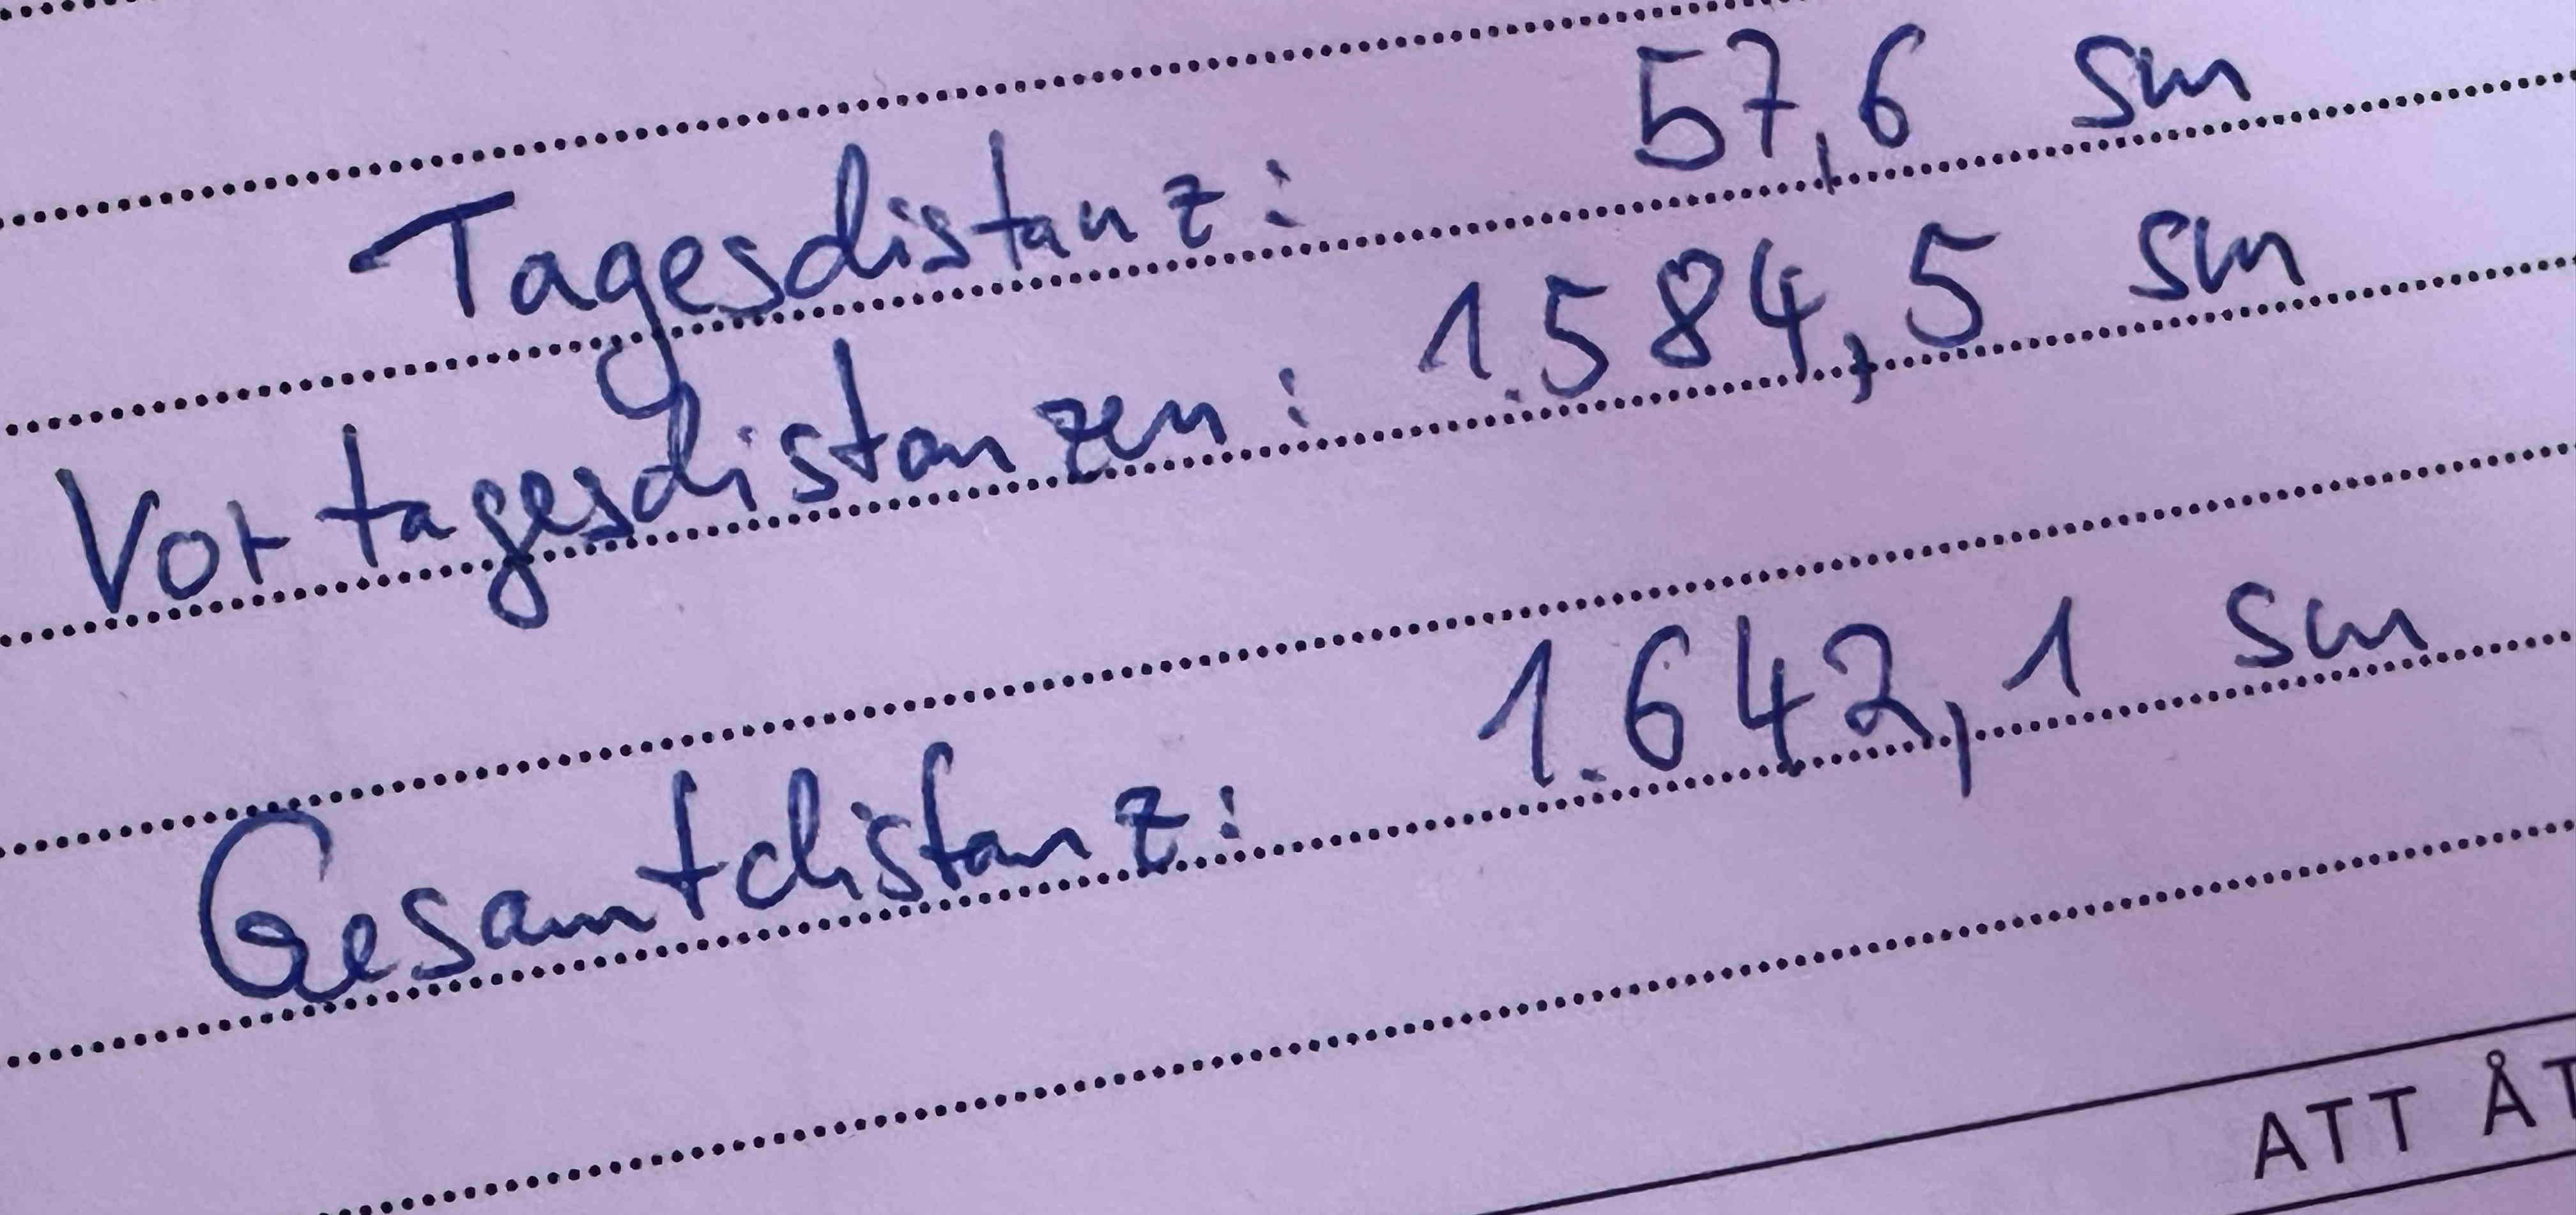 Tagesdistanz: 57,6 sm
Vortagesdistanzen: 1.584,5 sm
Gesamtdistanz: 1.642,1 sm
ATT ÅT